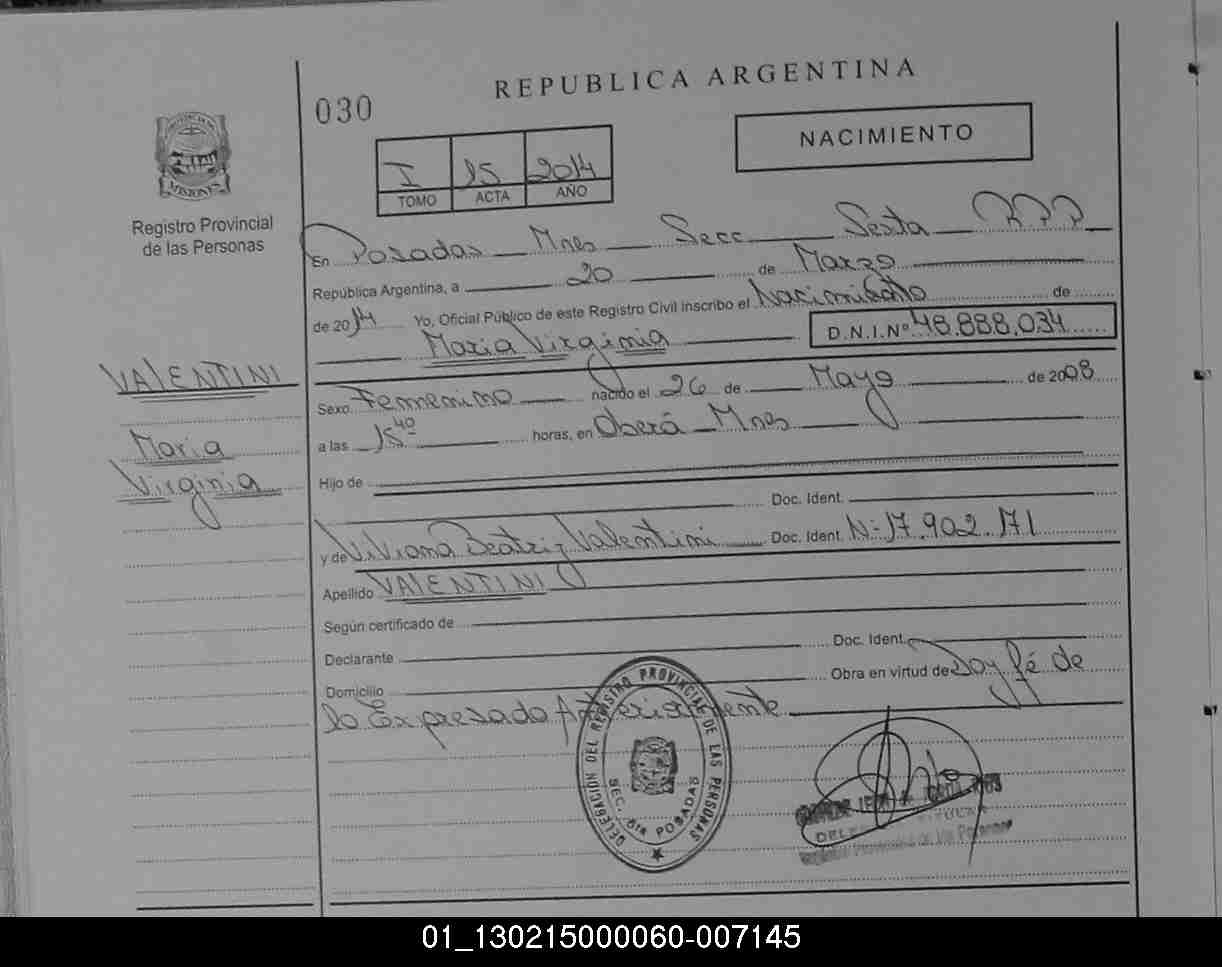 REPUBLICA ARGENTINA
030
NACIMIENTO
I 15 2014
TOMO ACTA AÑO
PROVINCIA DE
MISIONES
Registro Provincial
de las Personas
En Posadas Mnes Secc Sexta R.P.P
República Argentina, a 20 de Marzo
de 2014 Yo, Oficial Público de este Registro Civil inscribo el Nacimiento de
Maria Virginia D.N.I.Nº 48.888.034
VALENTINI
Maria
Virginia
Sexo Femenino nacido el 26 de Mayo de 2008
a las 15 40 horas, en Oberá Mnes
Hijo de
Doc. Ident.
y de Viviana Beatriz Valentini Doc. Ident. Nº 17.902.171
Apellido VALENTINI
Según certificado de
Declarante Doc. Ident.
Domicilio Obra en virtud de Doy fé de
lo Expresado Anteriormente
DELEGACIÓN DEL REGISTRO PROVINCIAL DE LAS PERSONAS
SEC. 6ta POSADAS
TITULAR
01_130215000060-007145